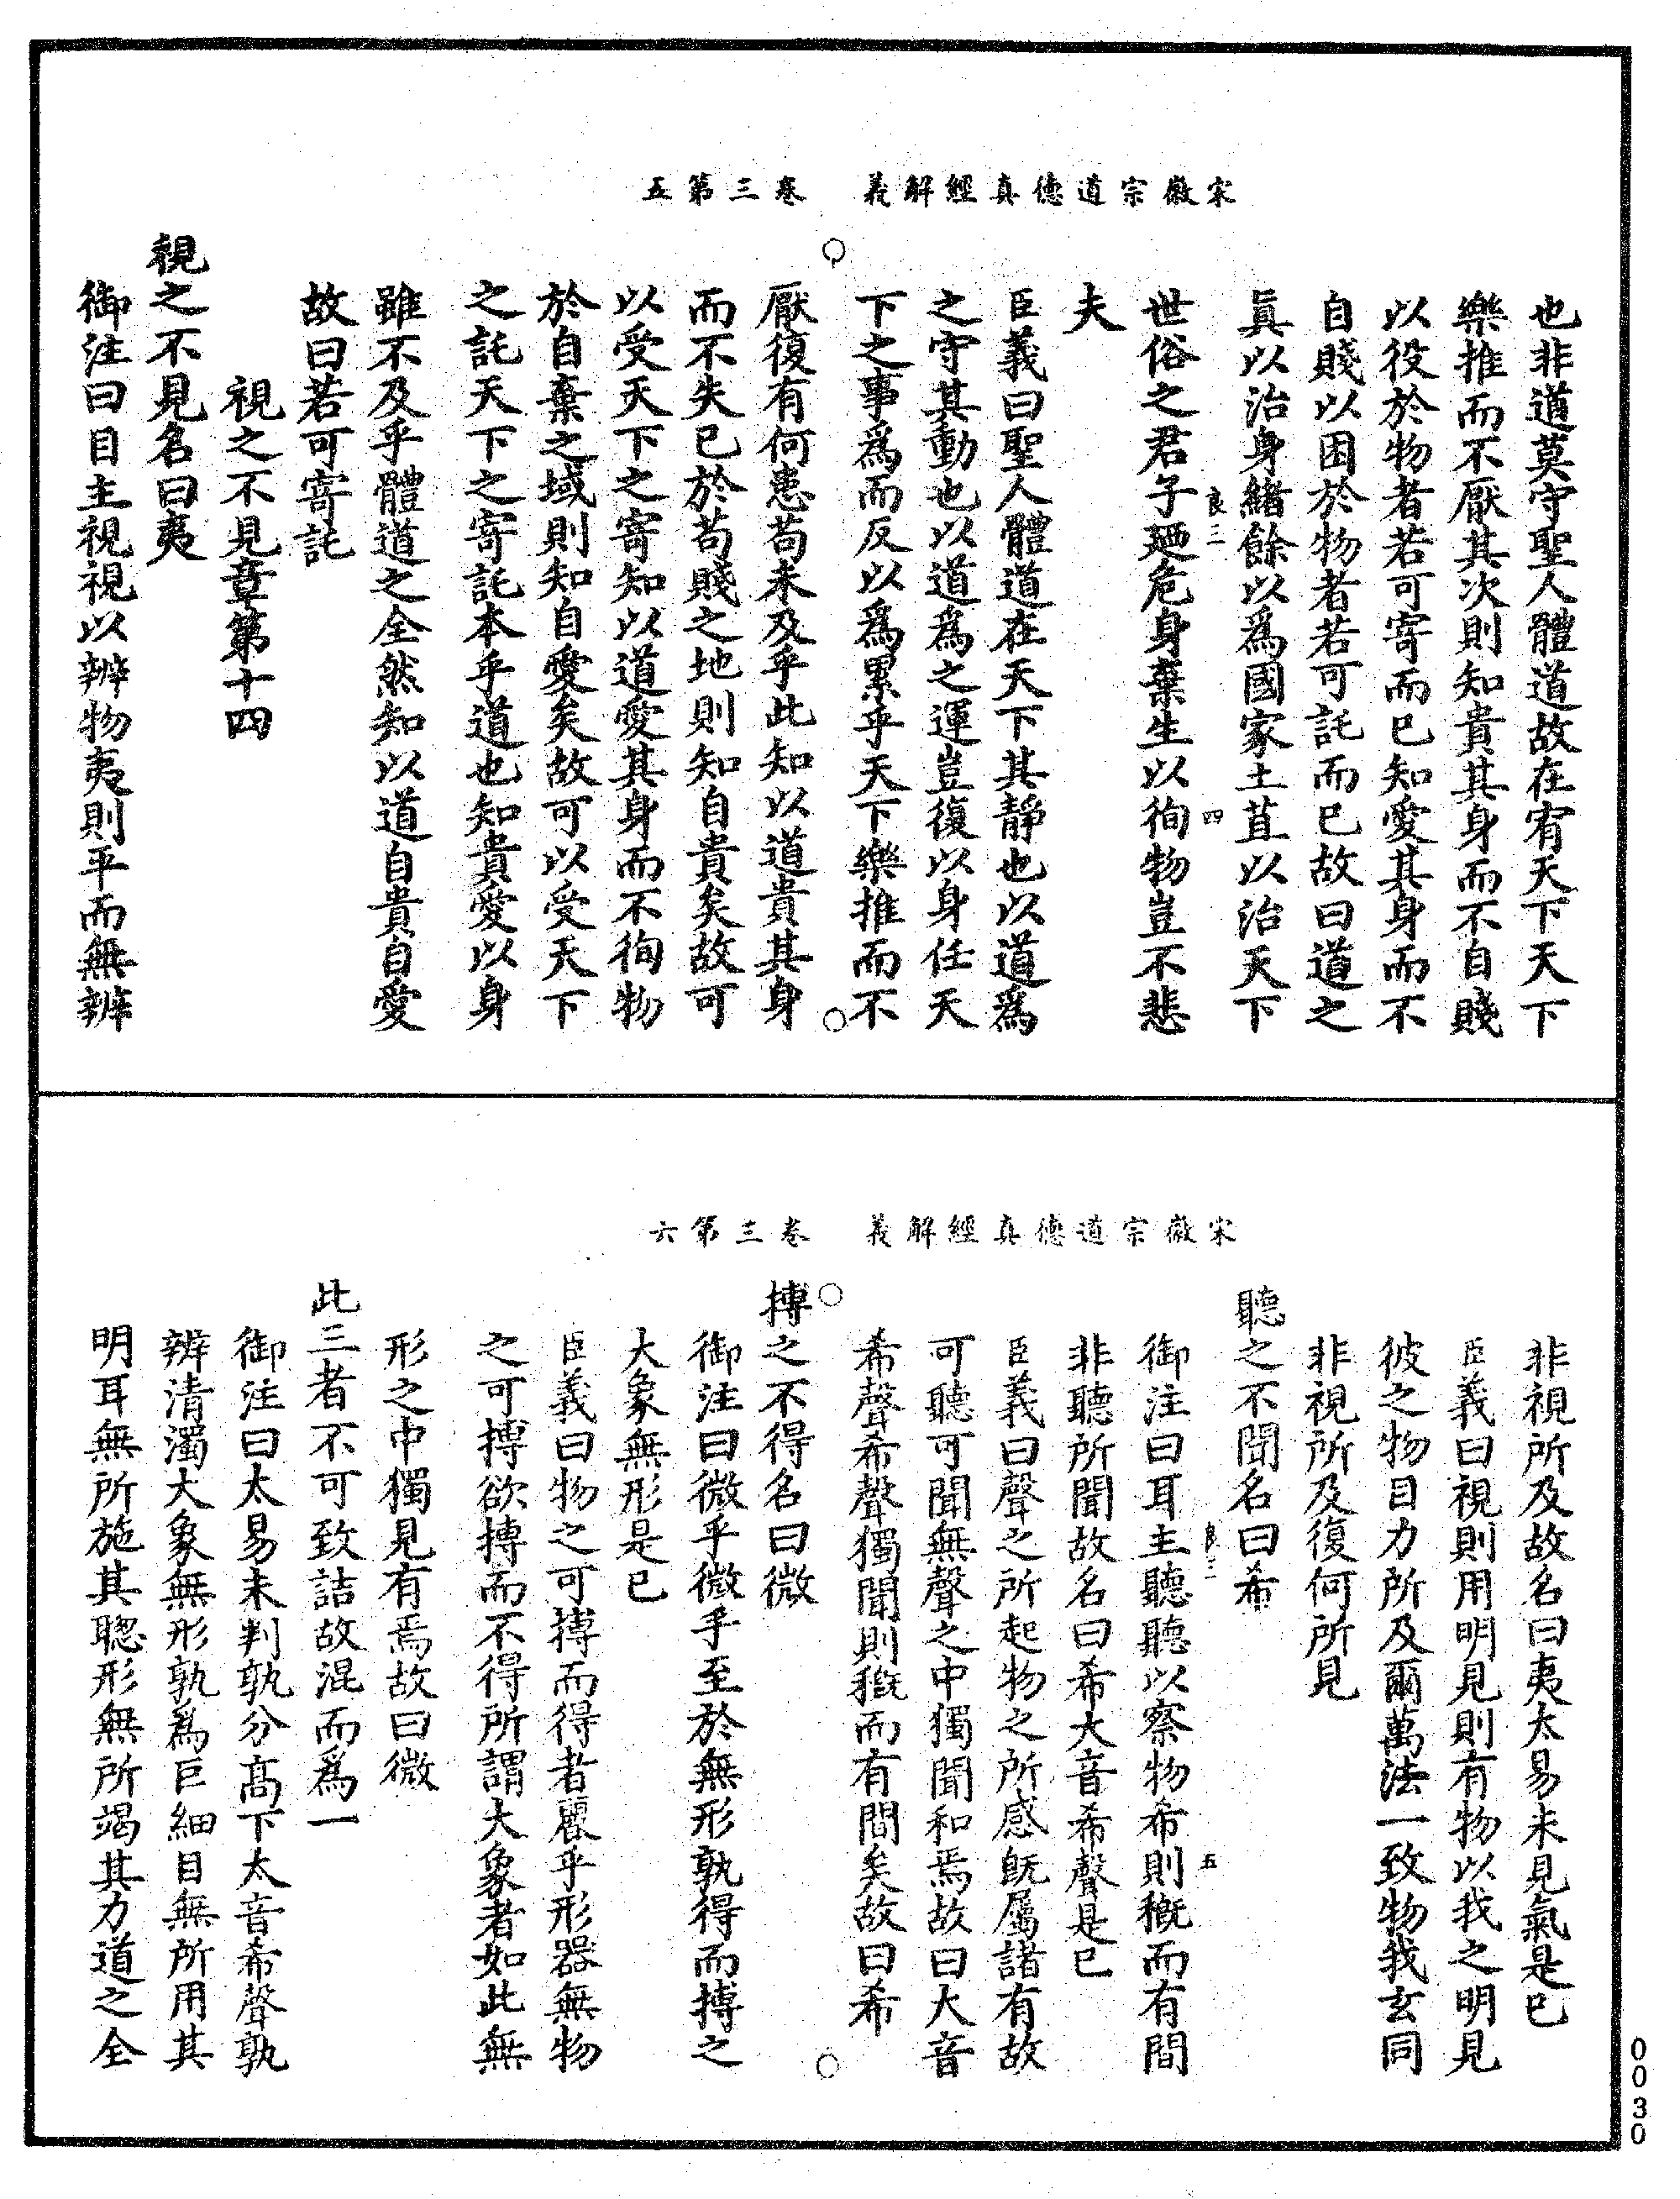 宋徽宗道德真經解義　卷三第五
也非道莫守聖人體道故在宥天下天下
樂推而不厭其次則知貴其身而不自賤
以役於物者若可寄而已知愛其身而不
自賤以困於物者若可託而已故曰道之
真以治身緒餘以爲國家土苴以治天下
良三　四
世俗之君子廼危身棄生以徇物豈不悲
夫
臣義曰聖人體道在天下其靜也以道爲
之守其動也以道爲之運豈復以身任天
下之事爲而反以爲累乎天下樂推而不
厭復有何患苟未及乎此知以道貴其身
而不失已於苟賤之地則知自貴矣故可
以受天下之寄知以道愛其身而不徇物
於自棄之域則知自愛矣故可以受天下
之託天下之寄託本乎道也知貴愛以身
雖不及乎體道之全然知以道自貴自愛
故曰若可寄託
視之不見章第十四
視之不見名曰夷
御注曰目主視視以辨物夷則平而無辨
宋徽宗道德真經解義　卷三第六
非視所及故名曰夷太易未見氣是已
臣義曰視則用明見則有物以我之明見
彼之物目力所及爾萬法一致物我玄同
非視所及復何所見
聽之不聞名曰希
良三　五
御注曰耳主聽聽以察物希則概而有間
非聽所聞故名曰希大音希聲是已
臣義曰聲之所起物之所感旣屬諸有故
可聽可聞無聲之中獨聞和焉故曰大音
希聲希聲獨聞則概而有間矣故曰希
搏之不得名曰微
御注曰微乎微乎至於無形孰得而搏之
大象無形是已
臣義曰物之可搏而得者麗乎形器無物
之可搏欲搏而不得所謂大象者如此無
形之中獨見有焉故曰微
此三者不可致詰故混而爲一
御注曰太易未判孰分高下太音希聲孰
辨清濁大象無形孰爲巨細目無所用其
明耳無所施其聰形無所竭其力道之全
0030